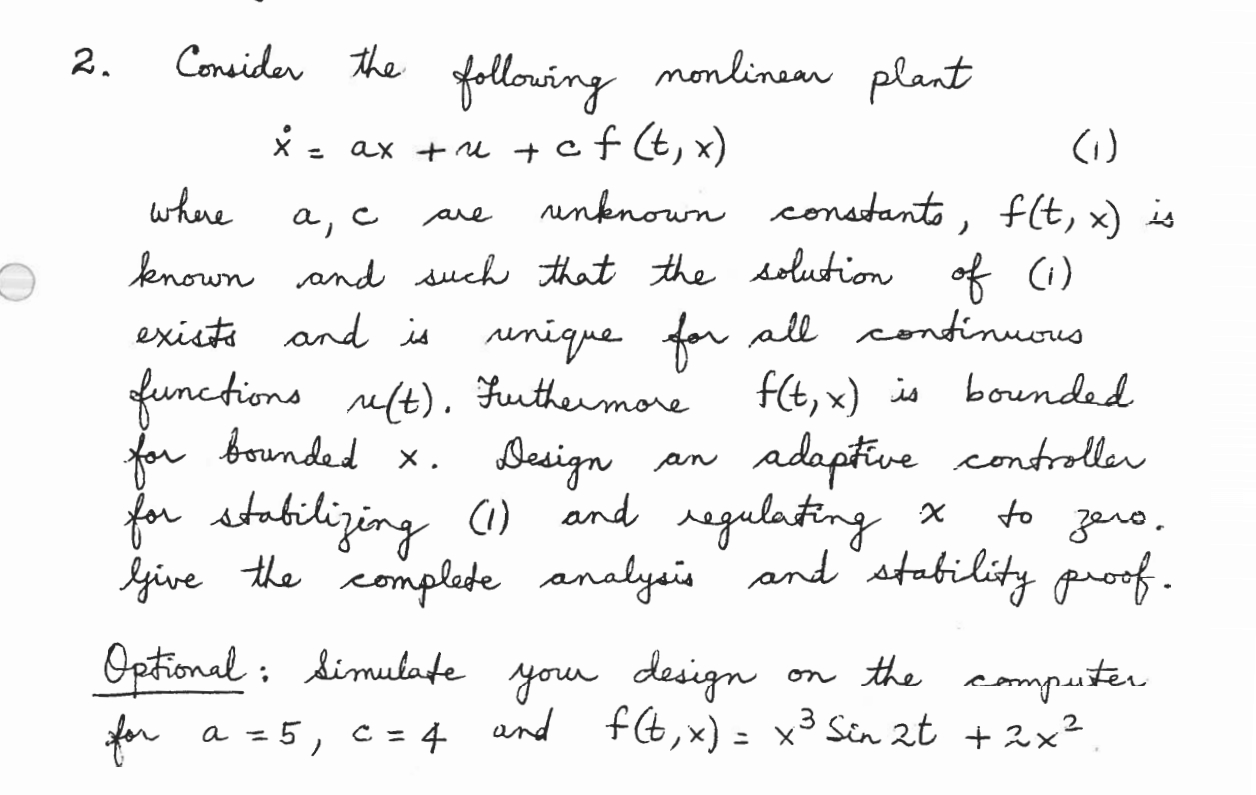 2. Consider the following nonlinear plant
ẋ = ax + u + c f(t, x) (1)
where a, c are unknown constants, f(t, x) is
known and such that the solution of (1)
exists and is unique for all continuous
functions u(t). Furthermore f(t, x) is bounded
for bounded x. Design an adaptive controller
for stabilizing (1) and regulating x to zero.
Give the complete analysis and stability proof.
Optional: Simulate your design on the computer
for a = 5, c = 4 and f(t, x) = x³ Sin 2t + 2x².